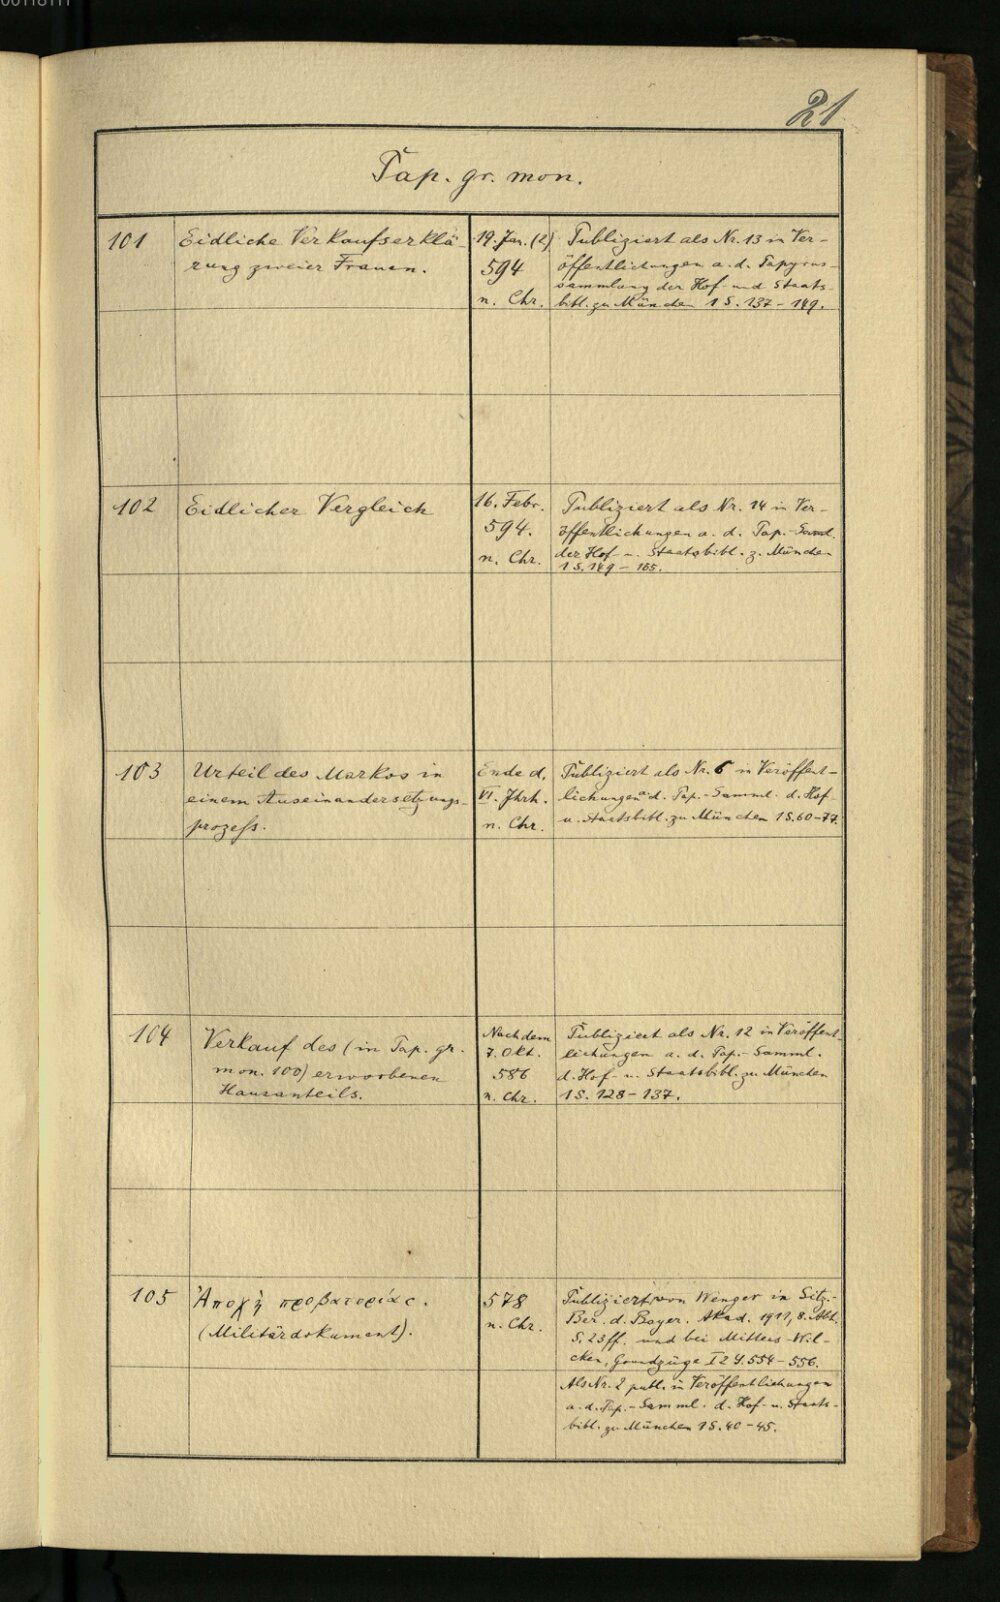 00118111
21
Pap. gr. mon.
101
Eidliche Verkaufserklä-
rung zweier Frauen.
19. Jan. (?)
594
n. Chr.
Publiziert als Nr. 13 in Ver-
öffentlichungen a. d. Papyrus-
sammlung der Hof- und Staats-
bibl. zu München 1 S. 137-149.
102
Eidlicher Vergleich
16. Febr.
594.
n. Chr.
Publiziert als Nr. 14 in Ver-
öffentlichungen a. d. Pap.-Samml.
der Hof- u. Staatsbibl. z. München
1 S. 149-165.
103
Urteil des Markos in
einem Auseinandersetzungs-
prozess.
Ende d.
VI. Jhrh.
n. Chr.
Publiziert als Nr. 6 in Veröffent-
lichungen a. d. Pap.-Samml. d. Hof-
u. Staatsbibl. zu München 1 S. 60-77.
104
Verkauf des (in Pap. gr.
mon. 100) erworbenen
Hausanteils.
Nach dem
7. Okt.
586
n. Chr.
Publiziert als Nr. 12 in Veröffent-
lichungen a. d. Pap.-Samml.
d. Hof- u. Staatsbibl. zu München
1 S. 128-137.
105
Ἀποχὴ προβατορίας.
(Militärdokument).
578
n. Chr.
Publiziert von Wenger in Sitz.-
Ber. d. Bayer. Akad. 1911, 8. Abt.
S. 23 ff. und bei Mitteis-Wil-
cken, Grundzüge I 2 S. 554-556.
Als Nr. 2 publ. in Veröffentlichungen
a. d. Pap.-Samml. d. Hof- u. Staats-
bibl. zu München 1 S. 40-45.